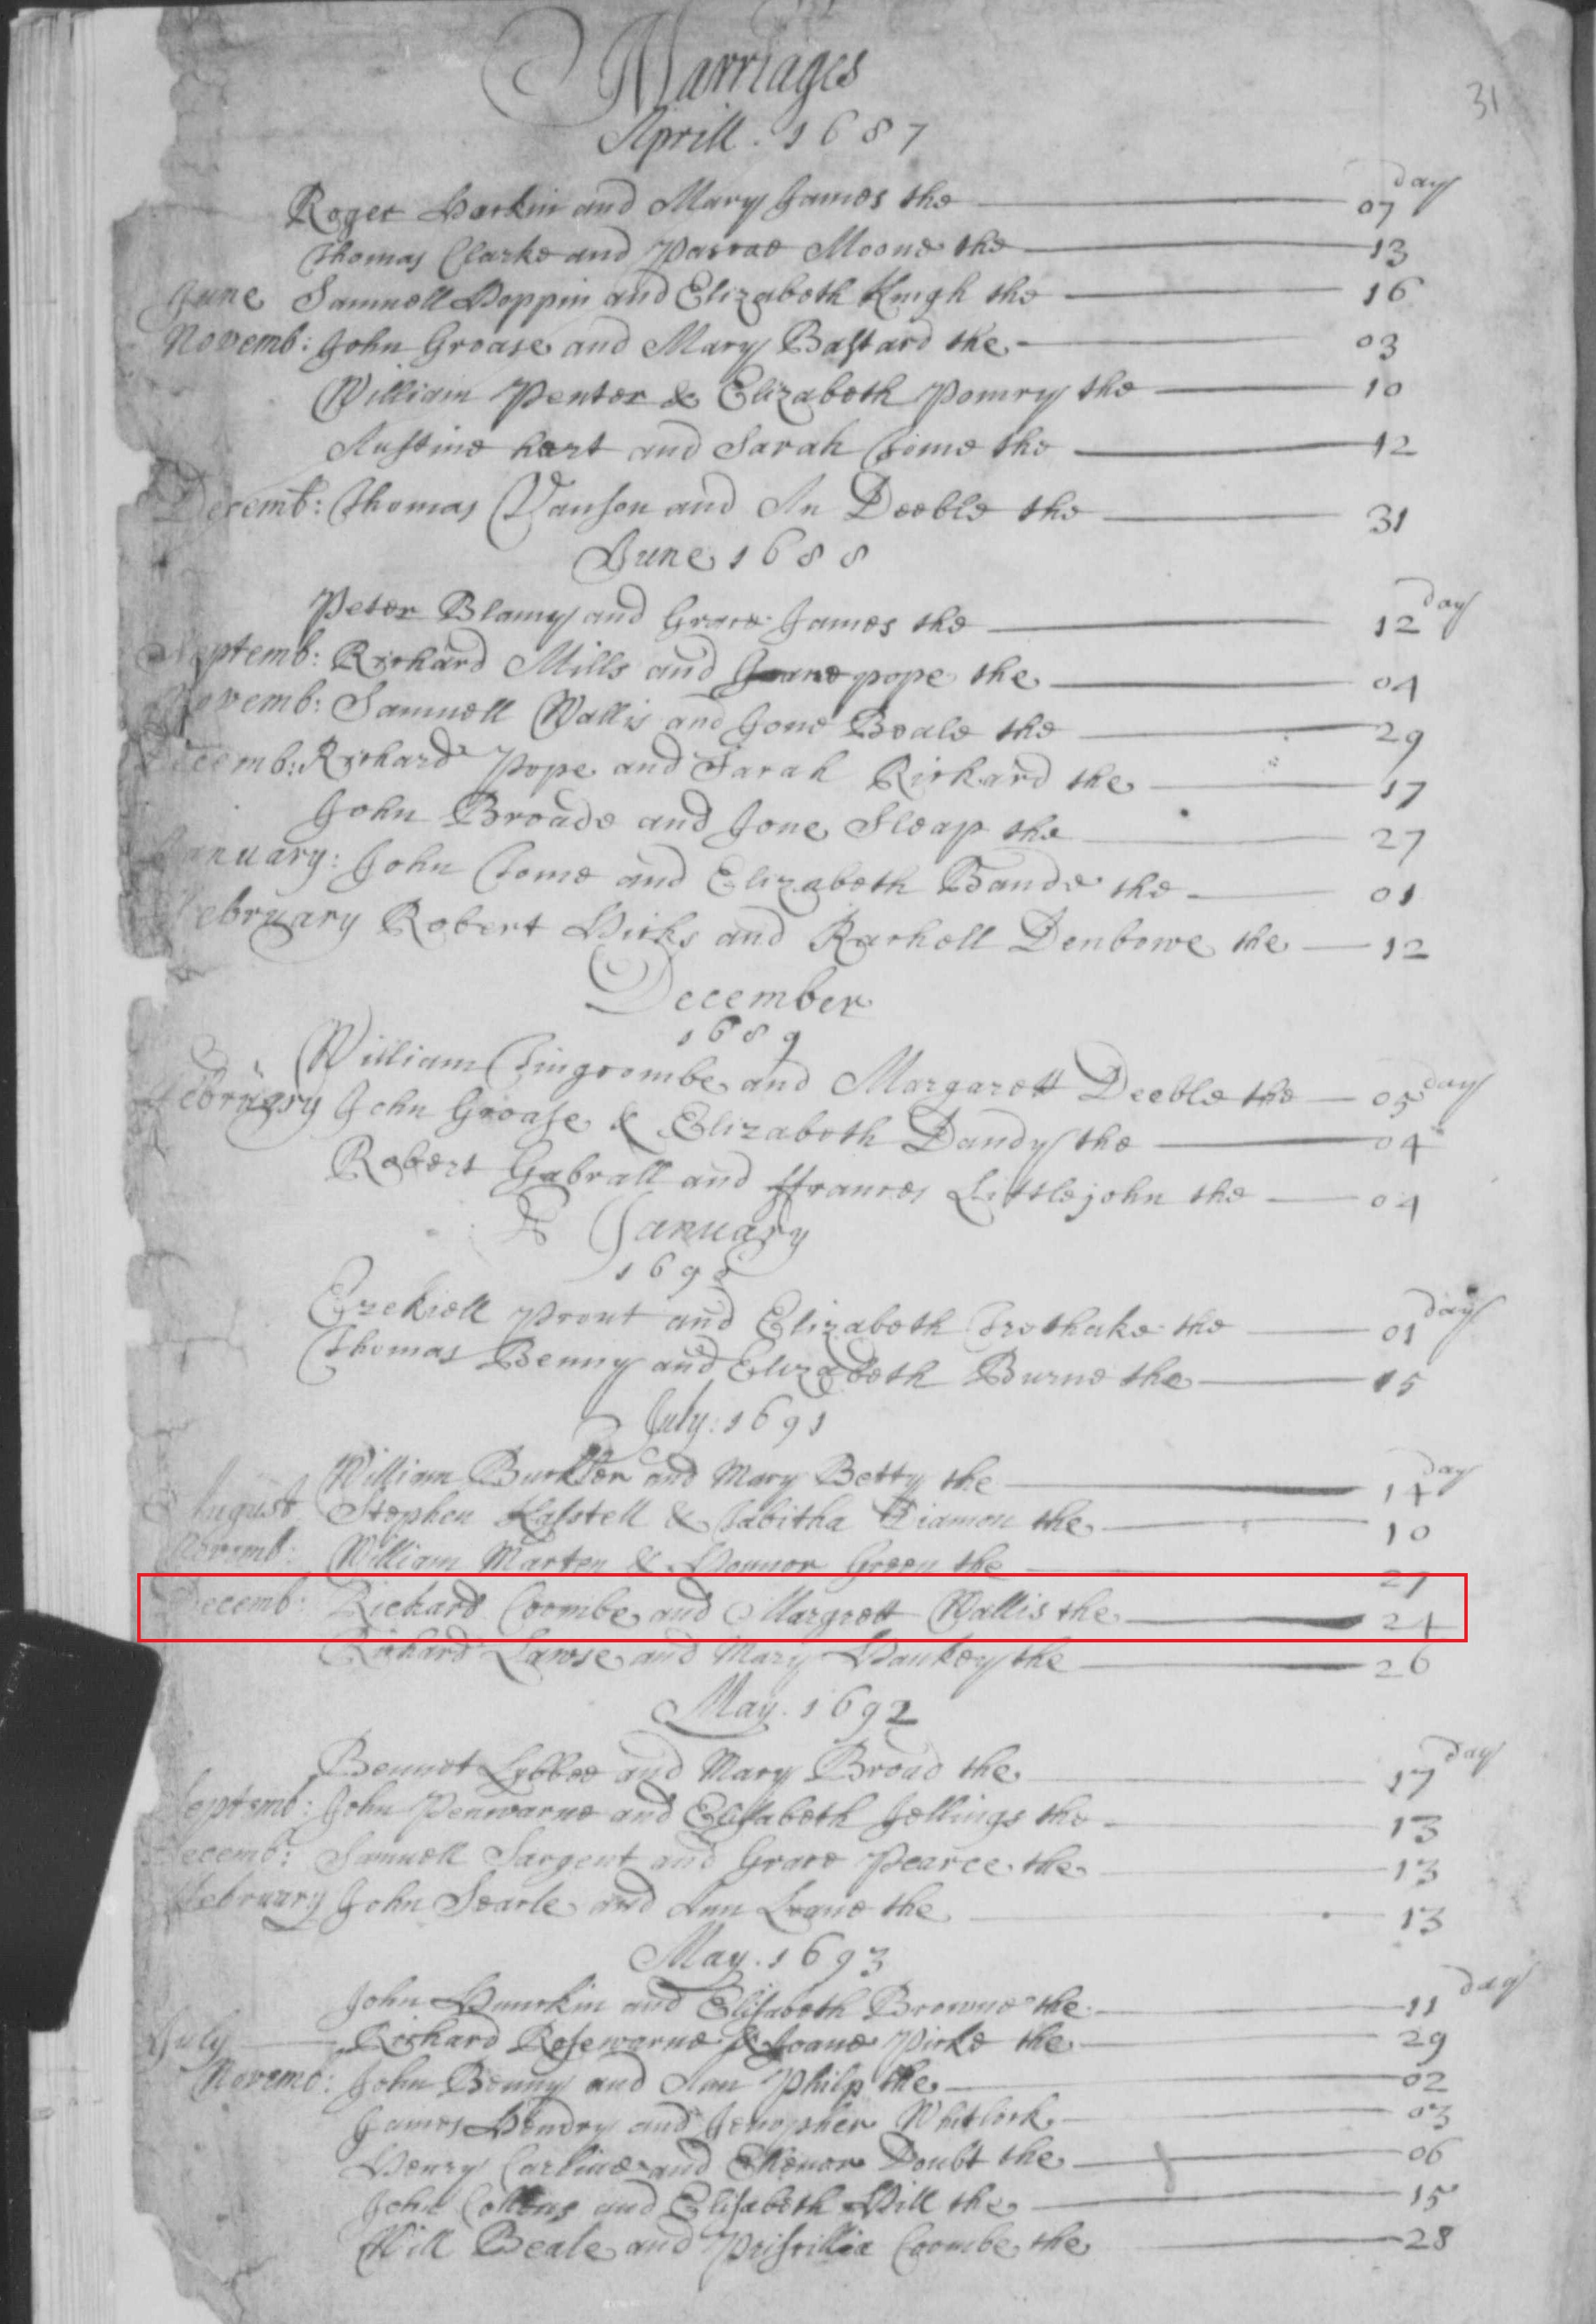 31
Marriages
Aprill . 1687
day
Roger Harkin and Mary James the 07
Thomas Clarke and Pascoe Moone the 13
June Samuell Hoppin and Elizabeth Knigh the 16
Novemb: John Groase and Mary Bastard the 03
William Penter & Elizabeth Pomry the 10
Austine hart and Sarah Tome the 12
Decemb: Thomas Vanson and An Deeble the 31
June 1688
day
Peter Blamy and Grace James the 12
Septemb: Richard Mills and pope the 04
Novemb: Samuell Wallis and Jone Beale the 29
Decemb: Richard Pope and Sarah Rickard the 17
John Broade and Jone Sleap the 27
January: John Tome and Elizabeth Bande the 01
February Robert Hicks and Rachell Denbowe the 12
December
1689
day
William Tingcombe and Margarett Deeble the 05
February John Groase & Elizabeth Dandy the 04
Robert Gabrall and ffrances Littlejohn the 04
January
1690
day
Ezekiell Prout and Elizabeth Trethake the 01
Thomas Benny and Elizabeth Burne the 15
July : 1691
day
William and Mary Betty the 14
August Stephen Kastell & Tabitha Diamon the 10
Novemb: William Marten & Honnor Green the 27
Decemb: Richard Coombe and Margrett Wallis the 24
Richard Lawse and Mary Hankey the 26
May . 1692
day
Bennet Lybbee and Mary Broad the 17
Septemb: John Penwarne and Elisabeth Jellings the 13
Decemb: Samuell Sargent and Grace Pearce the 13
February John Searle and Ann Leane the 13
May . 1693
day
John Hawkin and Elisabeth Browne the 11
July Richard Rosewarne & Joane Picke the 29
Novemb: John Benny and Ann Philp the 02
James Hendry and Jenopher Whitlock 03
Henry Carline and Ellenor Doubt the 06
John Collens and Elisabeth Hill the 15
Will Beale and Prissillia Coombe the 28